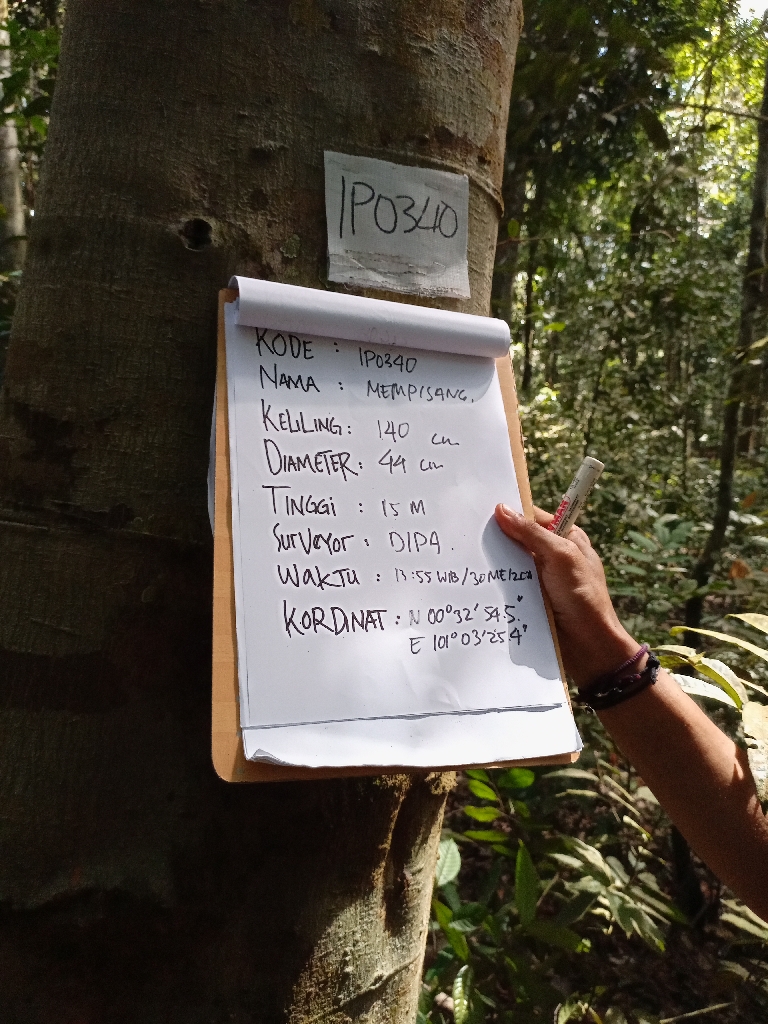 IP0340
KODE : IP0340
NAMA : MEMPISANG.
KELILING : 140 cm
DIAMETER : 44 cm
TINGGI : 15 M
SURVEYOR : DIPA.
WAKTU : 13:55 WIB/30 MEI/
KORDINAT : N 00°32'54.5"
E 101°03'25.4"